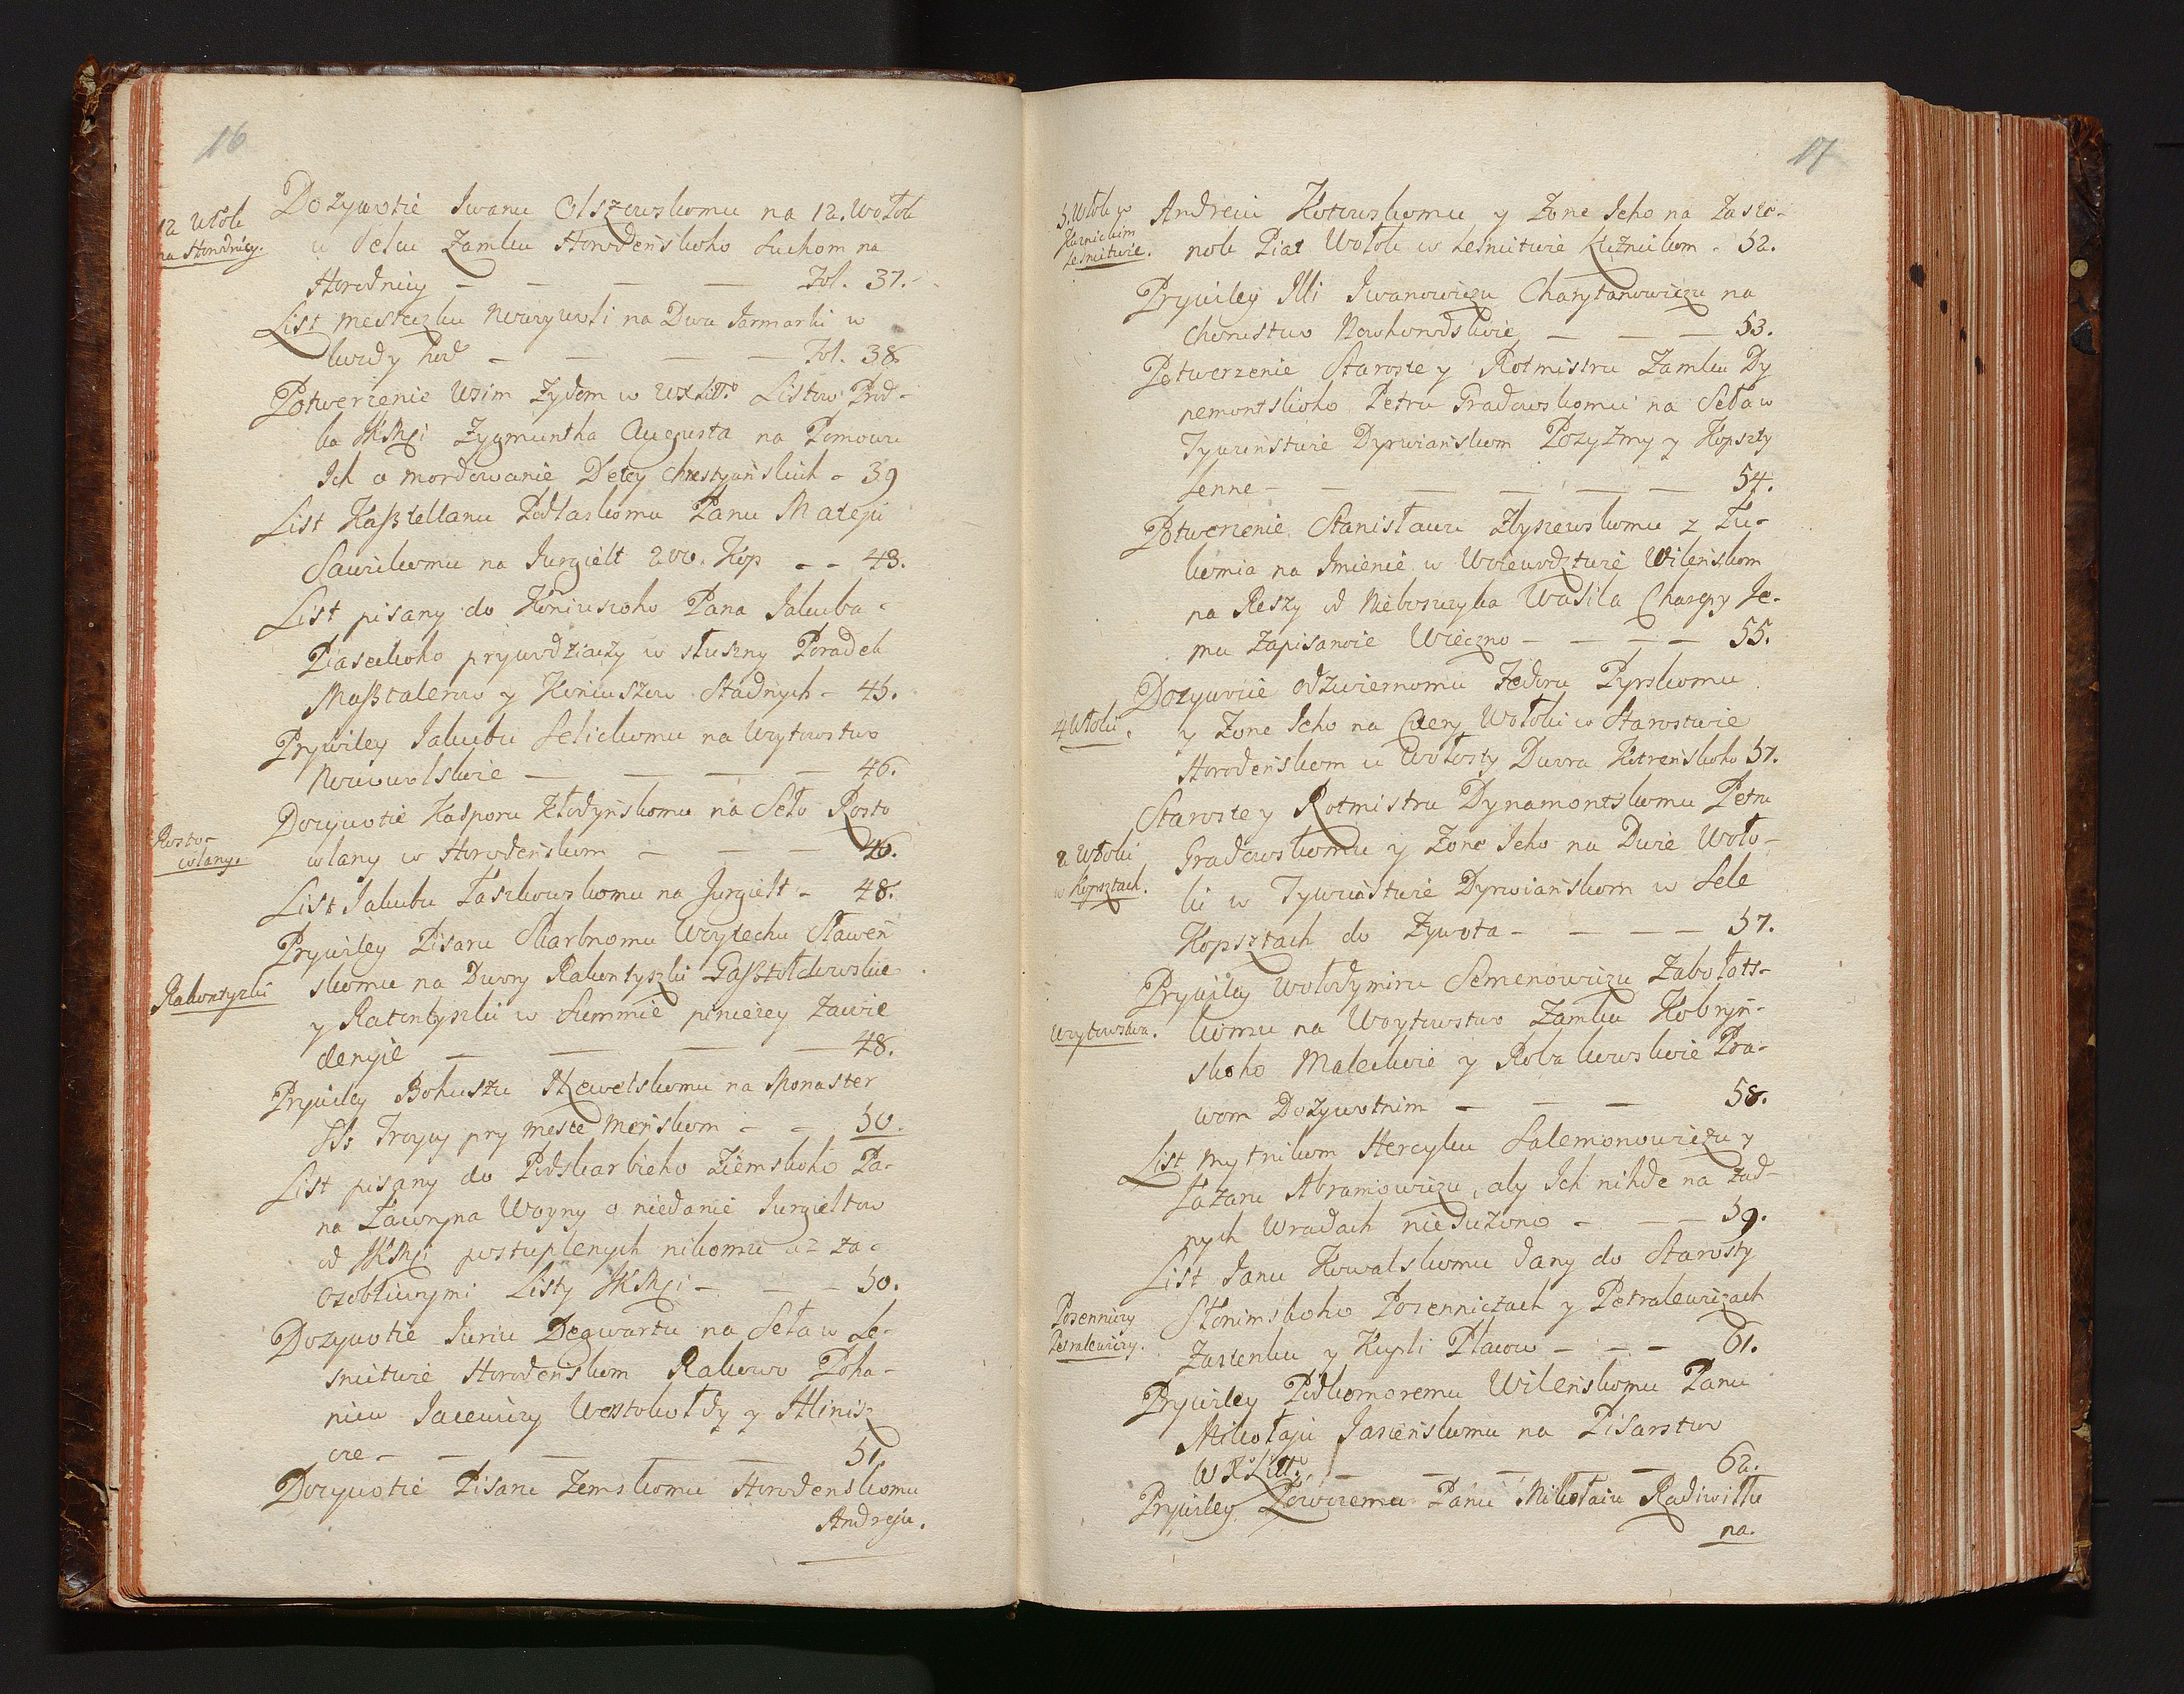 16
12 Włók
na Horodnicy.
Dożywotie Iwanu Olszewskomu na 12. Wołok
u Sełu Zamku Horodeńskoho Łuchom na
Horodnicy — — — — Fol. 37.
List mesteczku Nowywoli na Dwa Jarmarki w
kożdy hod — — — — Fol. 38.
Potwerżenie Wsim Żydom w WXLitt. Listow Pred-
ka JKMści Zygmuntha Augusta na Pomowu
Ich o mordowanie Detey chrestyańskich - 39
List Kasztellanu Podlaskomu Panu Mateju
Sawickomu na Jurgielt 200. Kop - - 43.
List pisany do Koniuszoho Pana Jakuba
Piaseckoho prywodziaczy w słuszny Poradek
Masztalerow y Koniuszow Stadnych - 45.
Prywiley Jakubu Selickomu na Woytowstwo
Nowowolskie — — — — 46.
Rosto-
wlany.
Dożywotie Kasporu Kłodyńskomu na Seło Rosto
wlany w Horodeńskom — — — 46.
List Jakubu Łaszkowskomu na Jurgielt - 48.
Prywiley Pisaru Skarbnomu Woytechu Sławeń
Rakontyszki
skomu na Dwory Rakontyszki Gasztołdowskie
y Rakontyszki w Summie piniezey zawie
denyie — — — — 48.
Prywiley Bohuszu Hzewelskomu na Monaster
SS. Troycy pry meste Meńskom - - 50.
List pisany do Podskarbieho Ziemskoho Pa-
na Ławryna Woyny o niedanie Jurgieltow
od JKMści postuplenych nikomu aż za
osobliwymi Listy JKMści - - - 50.
Dożywotie Juriu Degwartu na Seła w Le-
snictwie Horodeńskom Rakowo Poha-
nicu Jacewiczy Westokołdy y Hlinisz
cze - — — — — 51.
Dożywotie Pisaru Zemskomu Horodenskomu
Andreju.
17
5. Włók w
Kuznickim
Lesnictwie.
Andreiu Kotowskomu y Żone Jeho na Zaste-
nok Piat Wołok w Lesnictwie Kuznickom - 52.
Prywiley Illi Iwanowiczu Charytanowiczu na
Chorustwo Nowhorodskoie — — — 53.
Potwerżenie Staroste y Rotmistru Zamku Dy
nemontskoho Petru Gradowskomu na Seła w
Tywunstwie Dyrwiańskom Pożyżmy y Kopszty
Lenne - — — — — — 54.
Potwerżenie Stanisławu Zbyszewskomu z Łu-
komia na Imienie w Woiewodztwie Wileńskom
na Reszy od Nieboszczyka Wasila Charepy Je-
mu Zapisanoie Wieczno - — — — 55.
Dożywocie Odźwiernomu Fedoru Pyrskomu
4 Włoki.
y Żone Jeho na Czetery Wołoki w Starostwie
Horodeńskom u Wołosty Dwora Kotreńskoho 57.
Staroste y Rotmistru Dynamontskomu Petru
2 Włoki
w Kopsztach.
Gradowskomu y Żone Jeho na Dwie Woło-
ki w Tywunstwie Dyrwiańskom w Sele
Kopsztach do Żywota - — — — 57.
Prywiley Wołodymiru Semenowiczu Zabołots-
Woytowstwa.
komu na Woytowstwo Zamku Kobryń-
skoho Maleckoie y Robakowskoie Pra-
wom Dożywotnim — — — 58.
List Mytnikom Hercyku Salemonowiczu y
Łazaru Abramowiczu, aby Ich nihde na żad-
nych Wradach niesużono - — — 59.
List Janu Kowalskomu Dany do Starosty
Posenniczy
Petralewiczy.
Słonimskoho Posenniczach y Petralewiczach
Zastenku y Kupli Pławu - — - 61.
Prywiley Podkomoremu Wileńskomu Panu
Mikołaju Jasieńskomu na Pisarstwo
W X Litt. — — — — 62.
Prywiley Łowczemu Panu Mikołaiu Radiwiłłu
na.